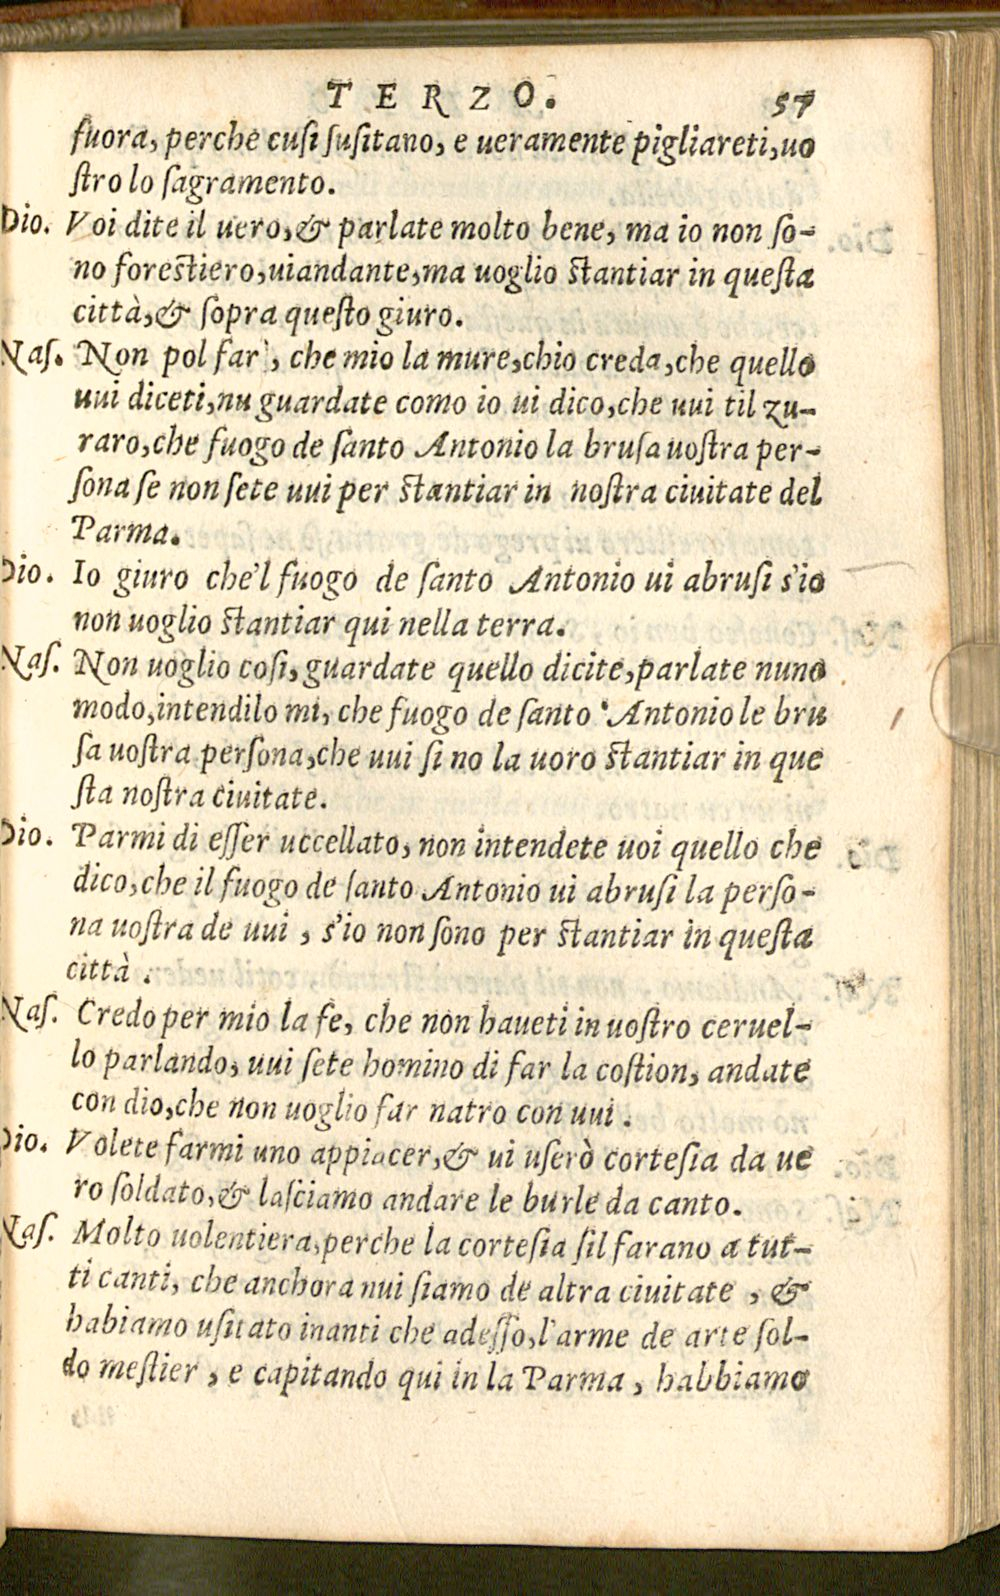 TERZO. 57
fuora, perche cusi susitano, e ueramente pigliareti, uo
stro lo sagramento.
Dio. Voi dite il uero, & parlate molto bene, ma io non so-
no forestiero, uiandante, ma uoglio stantiar in questa
città, & sopra questo giuro.
Nas. Non pol far, che mio la mure, chio creda, che quello
uui diceti, nu guardate como io ui dico, che uui til zu-
raro, che fuogo de santo Antonio la brusa uostra per-
sona se non sete uui per stantiar in nostra ciuitate del
Parma.
Dio. Io giuro che'l fuogo de santo Antonio ui abrusi s'io
non uoglio stantiar qui nella terra.
Nas. Non uoglio cosi, guardate quello dicite, parlate nuno
modo, intendilo mi, che fuogo de santo Antonio le bru
sa uostra persona, che uui si no la uoro stantiar in que
sta nostra ciuitate.
Dio. Parmi di esser uccellato, non intendete uoi quello che
dico, che il fuogo de santo Antonio ui abrusi la perso-
na uostra de uui, s'io non sono per stantiar in questa
città.
Nas. Credo per mio la fe, che non haueti in uostro ceruel-
lo parlando, uui sete homino di far la costion, andate
con dio, che non uoglio far natro con uui.
Dio. Volete farmi uno appiacer, & ui userò cortesia da ue
ro soldato, & lasciamo andare le burle da canto.
Nas. Molto uolentiera, perche la cortesia sil farano a tut-
ti canti, che anchora nui siamo de altra ciuitate, &
habiamo usitato inanti che adesso, l'arme de arte sol-
do mestier, e capitando qui in la Parma, habbiamo